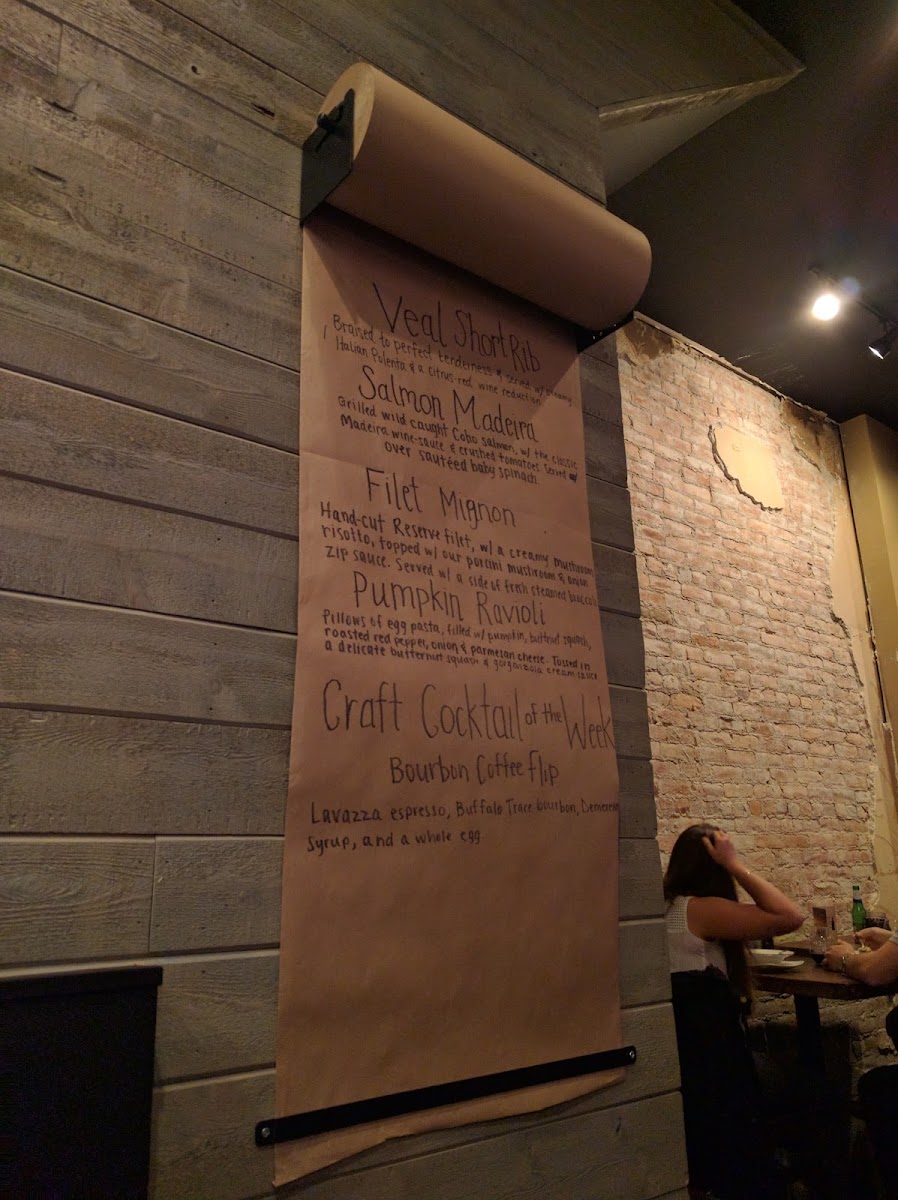 Veal Short Rib
Braised to perfect tenderness & served w/ creamy
Italian Polenta & a citrus-red wine reduction
Salmon Madeira
Grilled wild caught Coho salmon, w/ the classic
Madeira wine-sauce & crushed tomatoes. Served
over sautéed baby spinach
Filet Mignon
Hand-cut Reserve filet, w/ a creamy mushroom
risotto, topped w/ our porcini mushroom & onion
zip sauce. Served w/ a side of fresh steamed broccoli
Pumpkin Ravioli
Pillows of egg pasta, filled w/ pumpkin, buttnut squash,
roasted red pepper, onion & parmesan cheese. Tossed in
a delicate butternut squash & gorgonzola cream sauce
Craft Cocktail of the Week
Bourbon Coffee Flip
Lavazza espresso, Buffalo Trace bourbon,
Syrup, and a whole egg